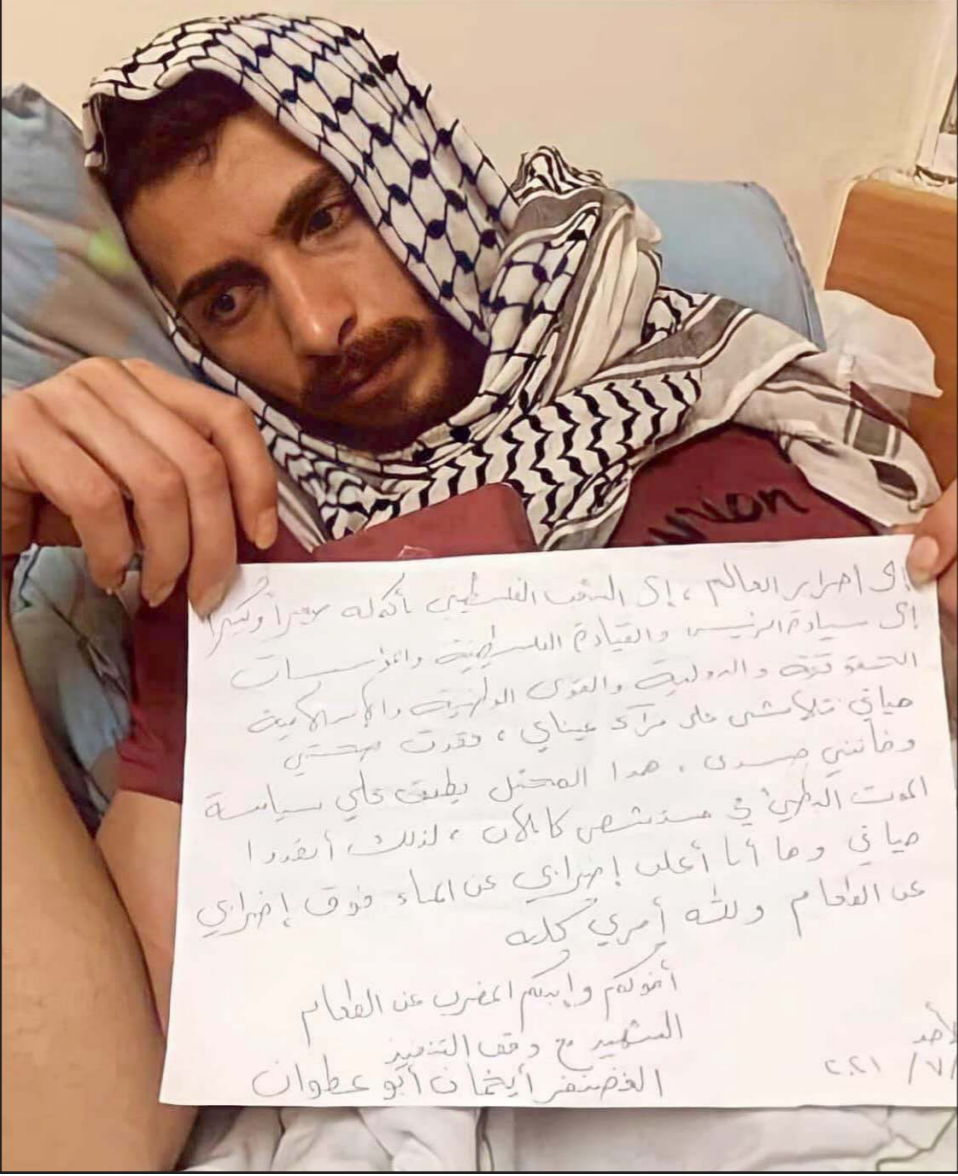 union
إلى احرار العالم ، إلى الشعب الفلسطيني بأكمله صغيراً وكبيراً
إلى سيادة الرئيس والقيادة الفلسطينية والمؤسسات
الحقوقية والدولية والقوى الوطنية والإسلامية
حياتي تتلاشى على مرآى عيناي ، فقدت صحتي
وخانني جسدي ، هذا المحتل يطبق علي سياسة
الموت البطيء في مستشفى كابلان ، لذلك أنقذوا
حياتي وها أنا أعلن إضرابي عن الماء فوق إضرابي
عن الطعام ولله أمري كله
أخوكم وإبنكم المضرب عن الطعام
الشهيد مع وقف التنفيذ
الغضنفر أيخمان أبو عطوان
الأحد
/٧/ ٢٠٢١